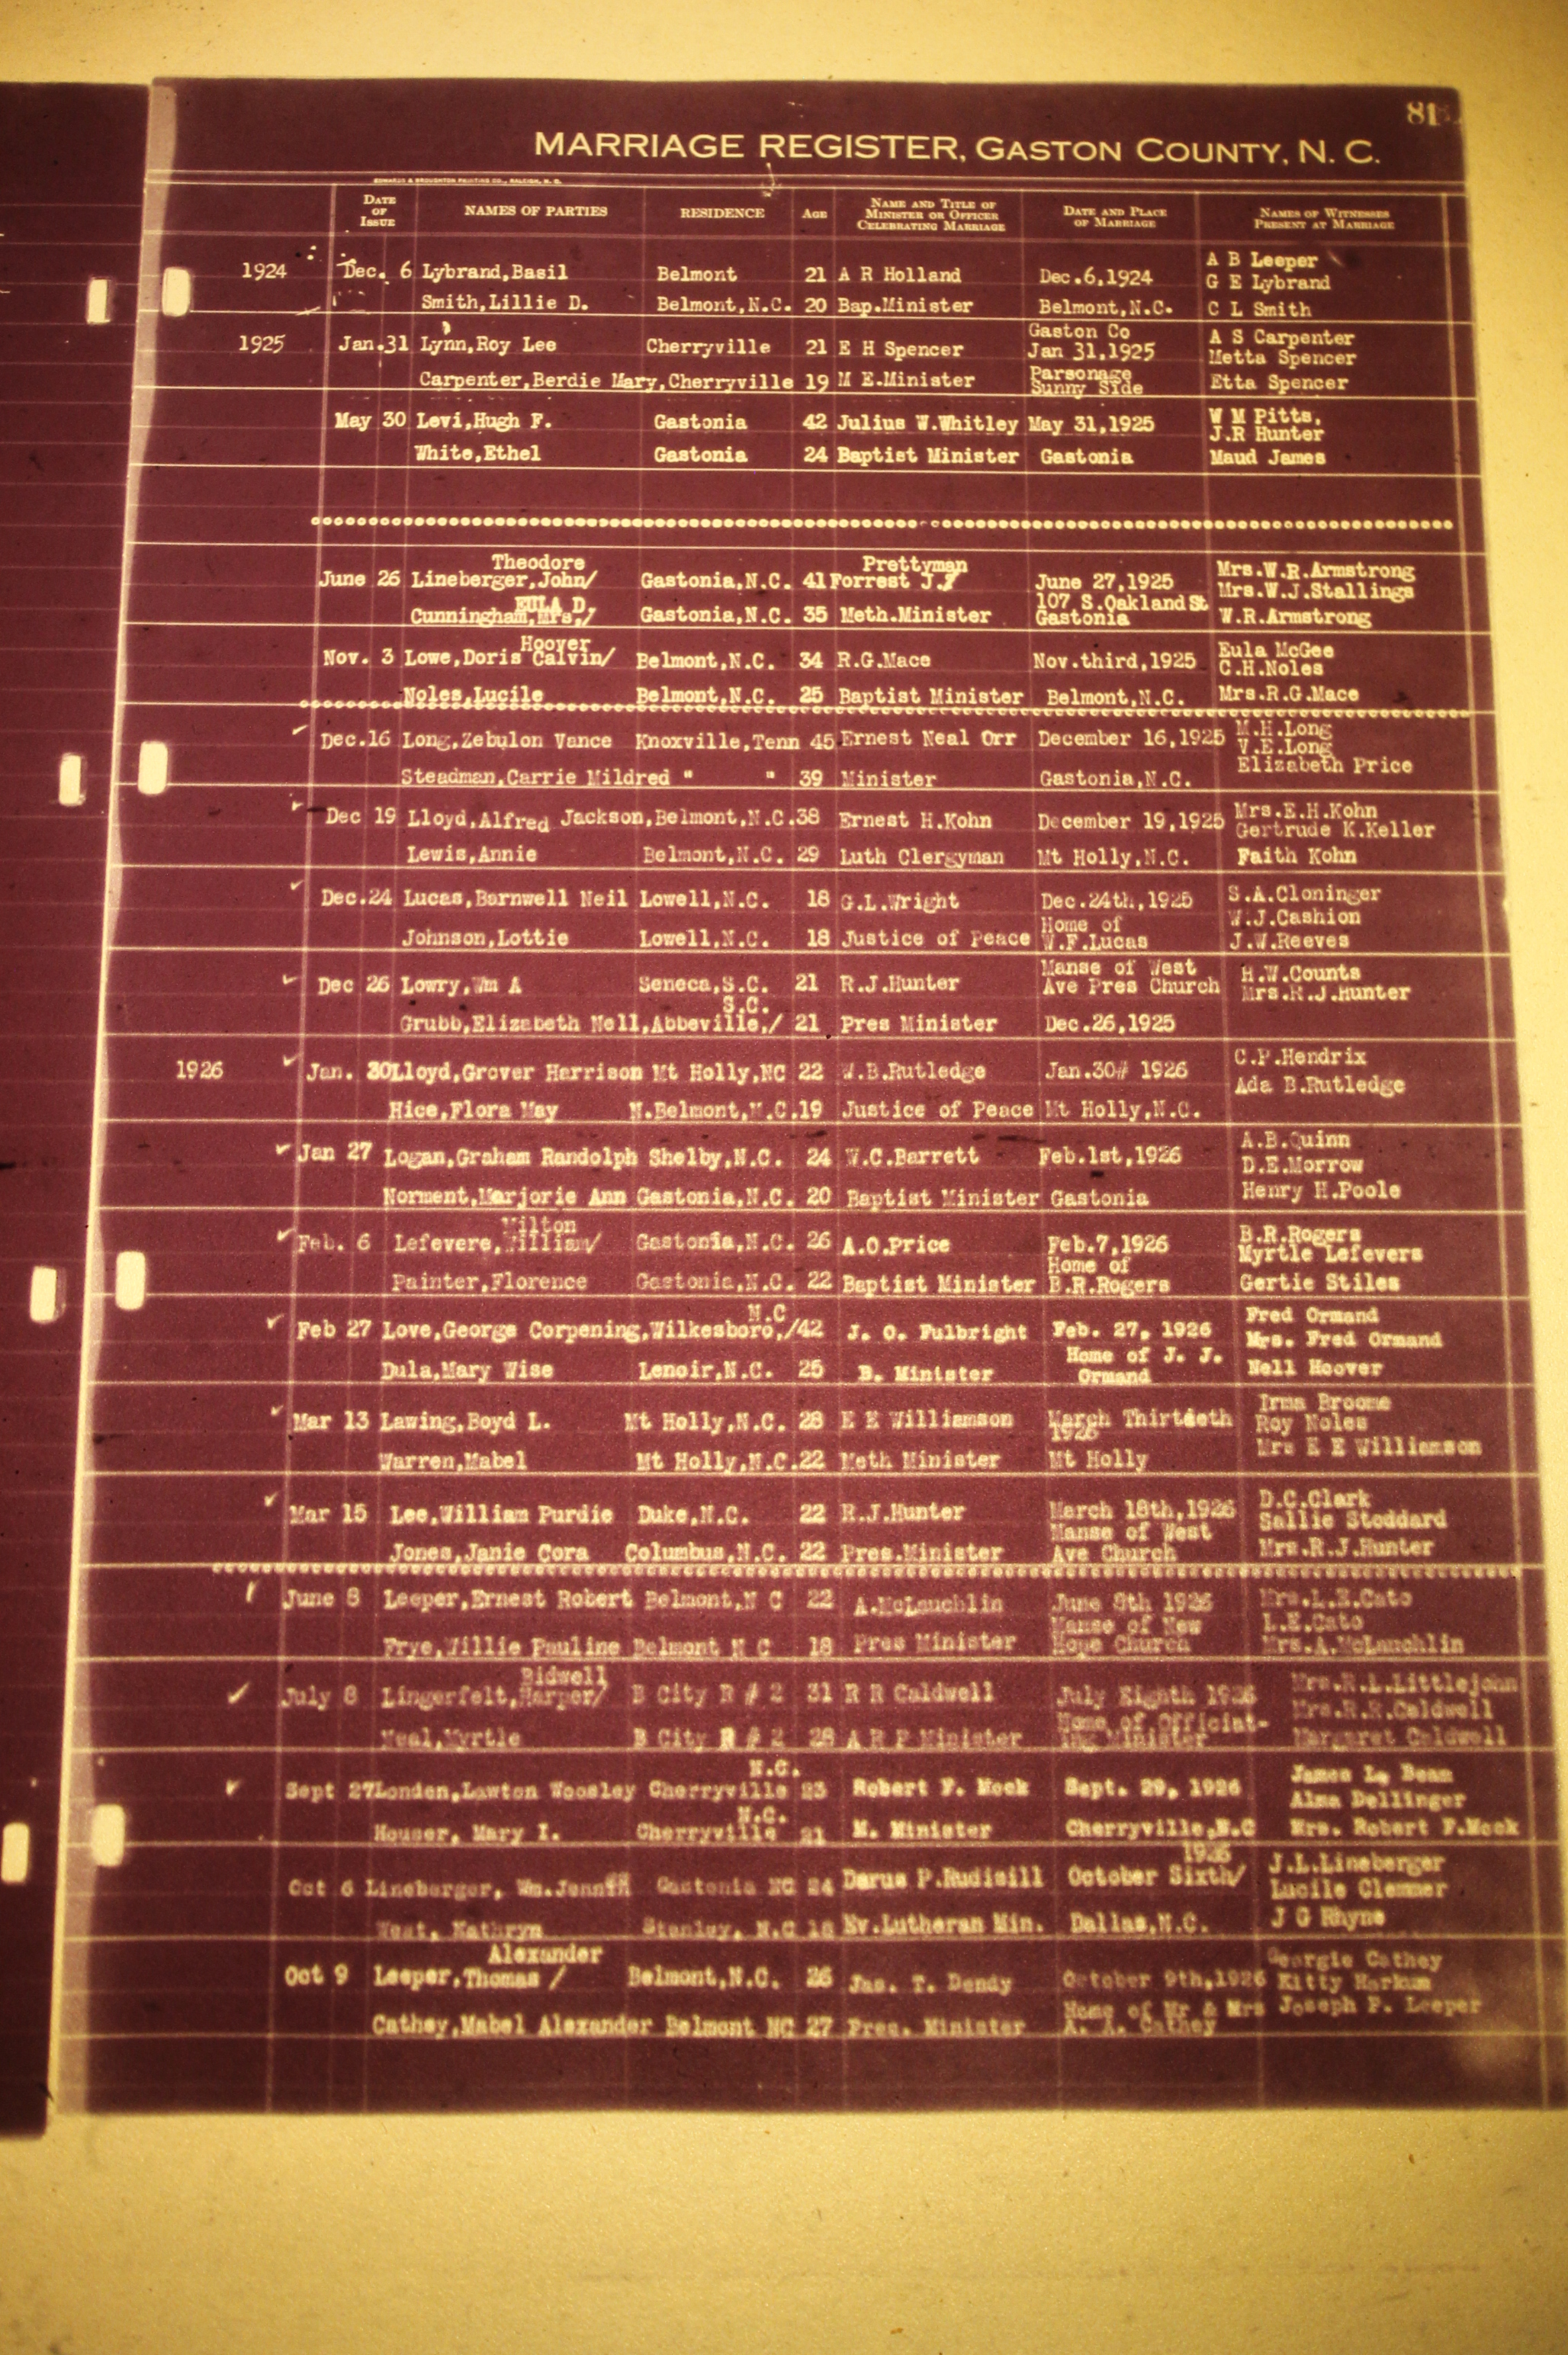 81
MARRIAGE REGISTER, GASTON COUNTY, N. C.
EDWARDS & BROUGHTON PRINTING CO., RALEIGH, N. C.
DATE OF ISSUE NAMES OF PARTIES RESIDENCE AGE NAME AND TITLE OF MINISTER OR OFFICER CELEBRATING MARRIAGE DATE AND PLACE OF MARRIAGE NAMES OF WITNESSES PRESENT AT MARRIAGE
A B Leeper
1924 Dec. 6 Lybrand,Basil Belmont 21 A R Holland Dec.6,1924 G E Lybrand
Smith,Lillie D. Belmont,N.C. 20 Bap.Minister Belmont,N.C. C L Smith
Gaston Co
1925 Jan.31 Lynn,Roy Lee Cherryville 21 E H Spencer Jan 31,1925 A S Carpenter
Metta Spencer
Parsonage
Carpenter,Berdie Mary,Cherryville 19 M E.Minister Sunny Side Etta Spencer
May 30 Levi,Hugh F. Gastonia 42 Julius W.Whitley May 31,1925 W M Pitts,
J.R Hunter
White,Ethel Gastonia 24 Baptist Minister Gastonia Maud James
Theodore Prettyman Mrs.W.R.Armstrong
June 26 Lineberger,John/ Gastonia,N.C. 41 Forrest J./ June 27,1925 Mrs.W.J.Stallings
EULA D. 107 S.Oakland St
Cunningham,Mrs,/ Gastonia,N.C. 35 Meth.Minister Gastonia W.R.Armstrong
Hoover Eula McGee
Nov. 3 Lowe,Doris Calvin/ Belmont,N.C. 34 R.G.Mace Nov.third,1925 C.H.Noles
Noles,Lucile Belmont,N.C. 25 Baptist Minister Belmont,N.C. Mrs.R.G.Mace
M.H.Long
Dec.16 Long,Zebulon Vance Knoxville,Tenn 45 Ernest Neal Orr December 16,1925 V.E.Long
Elizabeth Price
Steadman,Carrie Mildred " " 39 Minister Gastonia,N.C.
Mrs.E.H.Kohn
Dec 19 Lloyd,Alfred Jackson,Belmont,N.C.38 Ernest H.Kohn December 19,1925 Gertrude K.Keller
Lewis,Annie Belmont,N.C. 29 Luth Clergyman Mt Holly,N.C. Faith Kohn
S.A.Cloninger
Dec.24 Lucas,Barnwell Neil Lowell,N.C. 18 G.L.Wright Dec.24th,1925 W.J.Cashion
Home of
Johnson,Lottie Lowell,N.C. 18 Justice of Peace W.F.Lucas J.W.Reeves
Manse of West H.W.Counts
Dec 26 Lowry,Wm A Seneca,S.C. 21 R.J.Hunter Ave Pres Church Mrs.R.J.Hunter
S.C.
Grubb,Elizabeth Nell,Abbeville,/ 21 Pres Minister Dec.26,1925
C.P.Hendrix
1926 Jan. 30 Lloyd,Grover Harrison Mt Holly,NC 22 W.B.Rutledge Jan.30# 1926 Ada B.Rutledge
Hice,Flora May N.Belmont,N.C.19 Justice of Peace Mt Holly,N.C.
A.B.Quinn
Jan 27 Logan,Graham Randolph Shelby,N.C. 24 W.C.Barrett Feb.1st,1926 D.E.Morrow
Norment,Marjorie Ann Gastonia,N.C. 20 Baptist Minister Gastonia Henry H.Poole
Milton B.R.Rogers
Feb. 6 Lefevere,William/ Gastonia,N.C. 26 A.O.Price Feb.7,1926 Myrtle Lefevers
Home of
Painter,Florence Gastonia,N.C. 22 Baptist Minister B.R.Rogers Gertie Stiles
N.C Fred Ormand
Feb 27 Love,George Corpening,Wilkesboro,/42 J. O. Fulbright Feb. 27, 1926 Mrs. Fred Ormand
Home of J. J.
Dula,Mary Wise Lenoir,N.C. 25 B. Minister Ormand Nell Hoover
Irma Broome
Mar 13 Lawing,Boyd L. Mt Holly,N.C. 28 E E Williamson March Thirteeth Roy Noles
1926 Mrs E E Williamson
Warren,Mabel Mt Holly,N.C.22 Meth Minister Mt Holly
D.C.Clark
Mar 15 Lee,William Purdie Duke,N.C. 22 R.J.Hunter March 18th,1926 Sallie Stoddard
Manse of West
Jones,Janie Cora Columbus,N.C. 22 Pres.Minister Ave Church Mrs.R.J.Hunter
June 8 Leeper,Ernest Robert Belmont,N C 22 A.McLauchlin June 8th 1926 Mrs.L.E.Cato
Manse of New L.E.Cato
Frye,Willie Pauline Belmont N C 18 Pres Minister Hope Church Mrs.A.McLauchlin
Bidwell Mrs.R.L.Littlejohn
July 8 Lingerfelt,Harper/ B City R # 2 31 R R Caldwell July Eighth 1926 Mrs.R.R.Caldwell
Home of Officiat-
Neal,Myrtle B City R # 2 28 A R P Minister ing Minister Margaret Caldwell
N.C. James L. Beam
Sept 27 Londen,Lawton Woosley Cherryville 23 Robert F. Mock Sept. 29, 1926 Alma Dellinger
N.C.
Houser, Mary I. Cherryville 21 M. Minister Cherryville,N.C Mrs. Robert F.Mock
1926 J.L.Lineberger
Oct 6 Lineberger, Wm. Gastonia NC 24 Darus P.Rudisill October Sixth/ Lucile Clemmer
West, Kathryn Stanley, N.C 18 Ev.Lutheran Min. Dallas,N.C. J G Rhyne
Alexander Georgie Cathey
Oct 9 Leeper,Thomas / Belmont,N.C. 26 Jas. T. Dendy October 9th,1926 Kitty Harkum
Home of Mr & Mrs Joseph P. Leeper
Cathey,Mabel Alexander Belmont NC 27 Pres. Minister A. A. Cathey